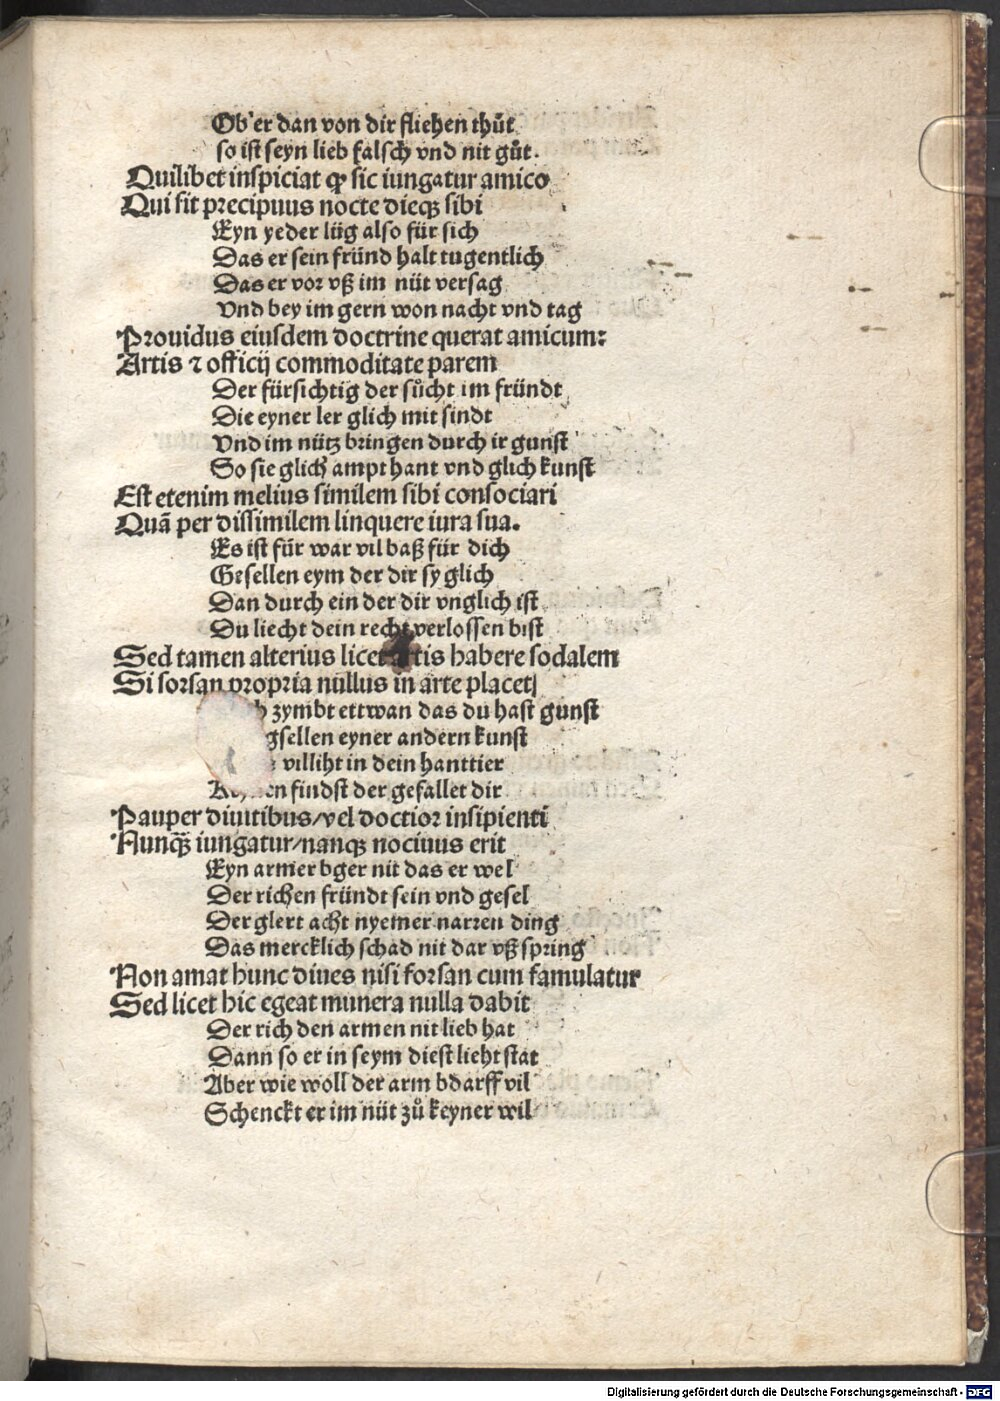 Ob er dan von dir fliehen thuͦt
so ist seyn lieb falsch vnd nit guͦt.
Quilibet inspiciat ꝙ sic iungatur amico
Qui sit precipuus nocte dieqꝫ sibi
Eyn yeder luͤg also für sich
Das er sein fründ halt tugentlich
Das er vor vß im nüt versag
Vnd bey im gern won nacht vnd tag
Prouidus eiusdem doctrine querat amicum:
Artis ⁊ officij commoditate parem
Der fürsichtig der suͦcht im fründt
Die eyner ler glich mit sindt
Vnd im nütz bringen durch ir gunst
So sie glich ampt hant vnd glich kunst
Est etenim melius similem sibi consociari
Quã per dissimilem linquere iura sua.
Es ist für war vil baß für dich
Gesellen eym der dir sy glich
Dan durch ein der dir vnglich ist
Du liecht dein recht verlossen bist
Sed tamen alterius licet artis habere sodalem
Si forsan propria nullus in arte placet
zymbt ettwan das du hast gunst
gsellen eyner andern kunst
villiht in dein hanttier
findst der gefallet dir
Pauper diuitibus/vel doctior insipienti
Nunqͣꝫ iungatur/nanqꝫ nociuus erit
Eyn armer bger nit das er wel
Der richen fründt sein vnd gesel
Der glert acht nyemer narren ding
Das mercklich schad nit dar vß spring
Non amat hunc diues nisi forsan cum famulatur
Sed licet hic egeat munera nulla dabit
Der rich den armen nit lieb hat
Dann so er in seym diest lieht stat
Aber wie woll der arm bdarff vil
Schenckt er im nüt zuͦ keyner wil
Digitalisierung gefördert durch die Deutsche Forschungsgemeinschaft - DFG